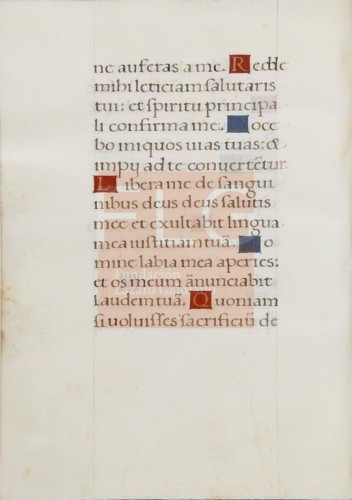 ne auferas a me. Redde
mihi leticiam salutaris
tui: et spiritu principa
li confirma me. Doce
bo iniquos uias tuas: &
impij ad te conuertētur.
Libera me de sangui
nibus deus deus salutis
mee et exultabit lingua
mea iustitiam tuā. Do
mine labia mea aperies:
et os meum ānunciabit
laudem tuā. Quoniam
si uoluisses sacrificiū de
FLG
Fundación
Lázaro Galdiano